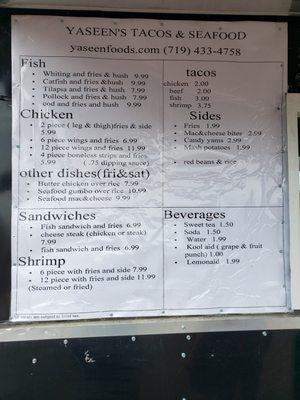 YASEEN'S TACOS & SEAFOOD
yaseenfoods.com (719) 433-4758
Fish
Whiting and fries & hush 9.99
Catfish and fries &hush 9.99
Tilapia and fries & hush 7.99
Pollock and fries & hush 7.99
cod and fries and hush 9.99
Chicken
2 piece ( leg & thigh)fries & side
5.99
6 piece wings and fries 6.99
12 piece wings and fries 11.99
4 piece boneless strips and fries
5.99 ( .75 dipping sauce)
other dishes(fri&sat)
Butter chicken over rice 7.99
Seafood gumbo over rice 10.99
Seafood mac&cheese 9.99
Sandwiches
Fish sandwich and fries 6.99
cheese steak (chicken or steak)
7.99
fish sandwich and fries 6.99
Shrimp
6 piece with fries and side 7.99
12 piece with fries and side 11.99
(Steamed or fried)
tacos
chicken 2.00
beef 2.00
fish 3.00
shrimp 3.75
Sides
Fries 1.99
Mac&cheese bites 2.99
Candy yams 2.99
Mash potatoes 1.99
red beans & rice
Beverages
Sweet tea 1.50
Soda 1.50
Water 1.99
Kool aid ( grape & fruit
punch) 1.00
Lemonaid 1.99